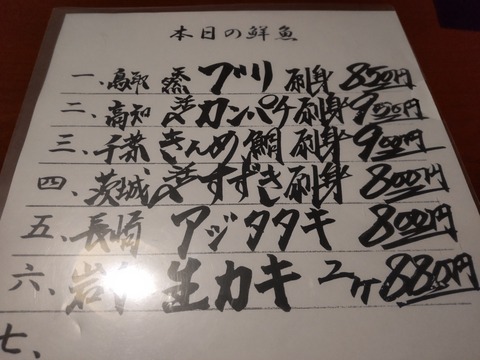 本日の鮮魚
一、鳥取 天然 ブリ 刺身 850円
二、高知 活 カンパチ刺身 900円
三、千葉 きんめ鯛 刺身 900円
四、茨城 活 すずき刺身 800円
五、長崎 アジタタキ 800円
六、岩手 生カキ 2ケ 880円
七、